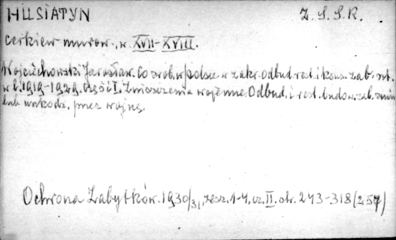 HUSIATYN Z.S.S.R.
cerkiew murow. w. XVII-XVIII.
Wojciechowski Jarosław. Co zrob. w Polsce w zakr. odbud. rest. i kons. zab. szt.
w l. 1919-1929. Część I. Zniszczenia wojenne. Odbud. i rest. budow. zab. zniszcz.
lub uszkodz. przez wojnę.
Ochrona Zabytków. 1930/31, zesz. 1-4, cz. II. str. 243-318 (257)